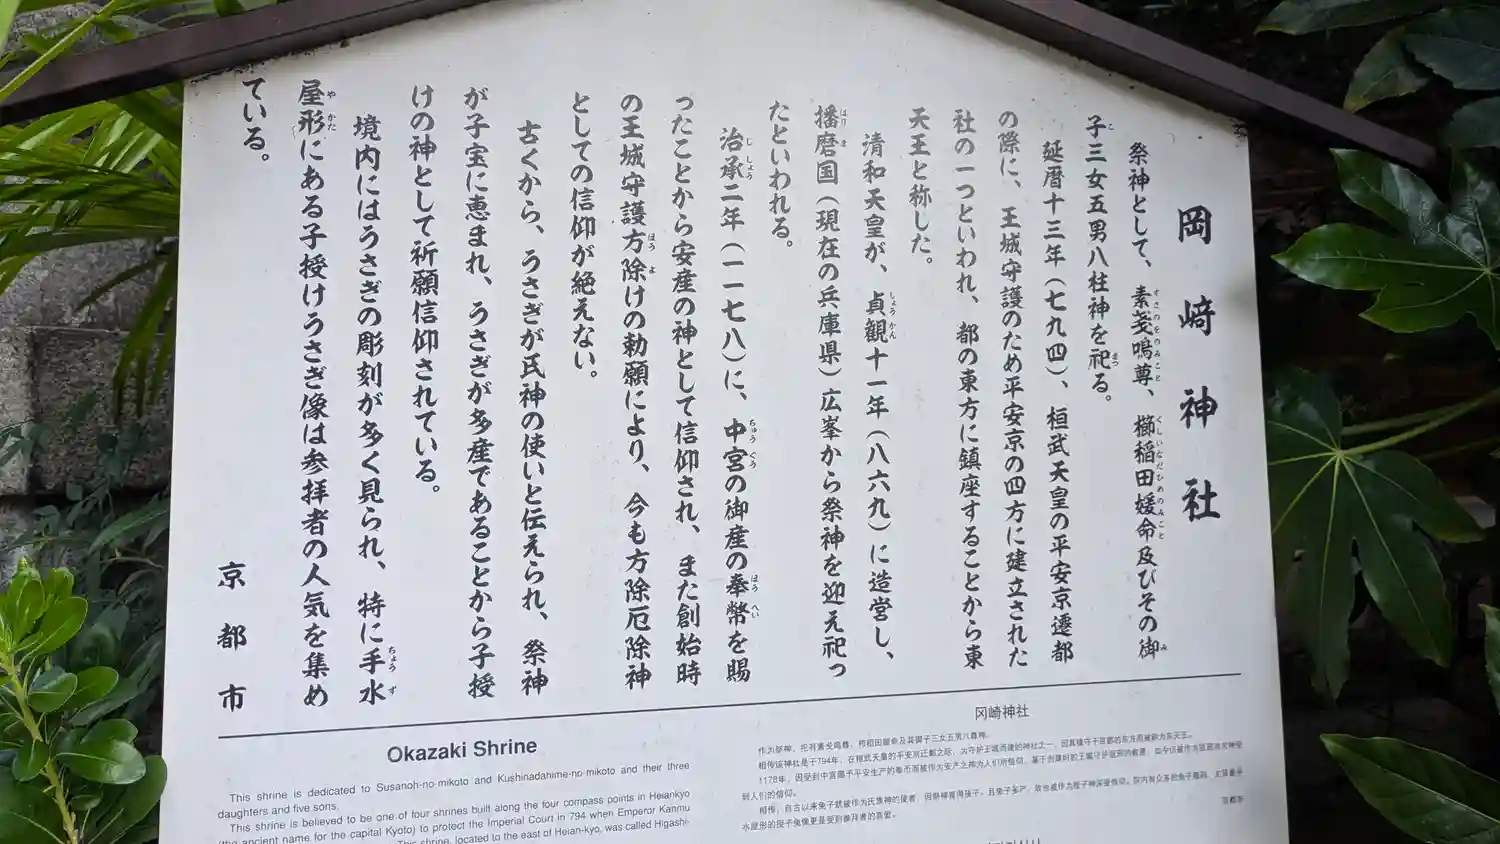 岡﨑神社
祭神として、素戔嗚尊、櫛稲田媛命及びその御
子三女五男八柱神を祀る。
延暦十三年（七九四）、桓武天皇の平安京遷都
の際に、王城守護のため平安京の四方に建立された
社の一つといわれ、都の東方に鎮座することから東
天王と称した。
清和天皇が、貞観十一年（八六九）に造営し、
播磨国（現在の兵庫県）広峯から祭神を迎え祀っ
たといわれる。
治承二年（一一七八）に、中宮の御産の奉幣を賜
ったことから安産の神として信仰され、また創始時
の王城守護方除けの勅願により、今も方除厄除神
としての信仰が絶えない。
古くから、うさぎが氏神の使いと伝えられ、祭神
が子宝に恵まれ、うさぎが多産であることから子授
けの神として祈願信仰されている。
境内にはうさぎの彫刻が多く見られ、特に手水
屋形にある子授けうさぎ像は参拝者の人気を集め
ている。
京都市
Okazaki Shrine
This shrine is dedicated to Susanoh-no-mikoto and Kushinadahime-no-mikoto and their three
daughters and five sons.
This shrine is believed to be one of four shrines built along the four compass points in Heiankyo
(the ancient name for the capital Kyoto) to protect the Imperial Court in 794 when Emperor Kanmu
This shrine, located to the east of Heian-kyo, was called Higashi-
冈崎神社